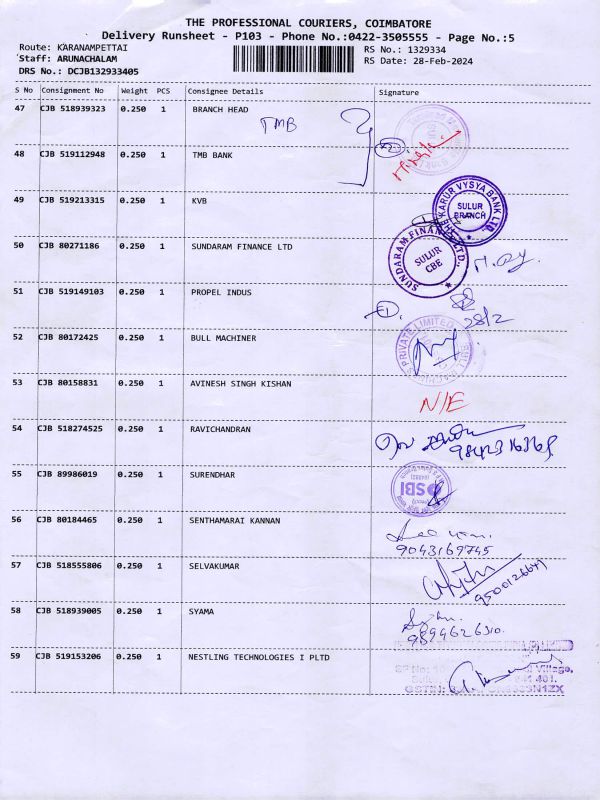 THE PROFESSIONAL COURIERS, COIMBATORE
Delivery Runsheet - P103 - Phone No.:0422-3505555 - Page No.:5
Route: KARANAMPETTAI RS No.: 1329334
Staff: ARUNACHALAM RS Date: 28-Feb-2024
DRS No.: DCJB132933405
S No Consignment No Weight PCS Consignee Details Signature
47 CJB 518939323 0.250 1 BRANCH HEAD
TMB
48 CJB 519112948 0.250 1 TMB BANK
49 CJB 519213315 0.250 1 KVB
KARUR VYSYA BANK LTD
SULUR
BRANCH
50 CJB 80271186 0.250 1 SUNDARAM FINANCE LTD
SUNDARAM FINANCE LTD.,
SULUR
CBE
51 CJB 519149103 0.250 1 PROPEL INDUS
28/2
52 CJB 80172425 0.250 1 BULL MACHINER
PRIVATE LIMITED
53 CJB 80158831 0.250 1 AVINESH SINGH KISHAN
N/E
54 CJB 518274525 0.250 1 RAVICHANDRAN
55 CJB 89986019 0.250 1 SURENDHAR
SBI
56 CJB 80184465 0.250 1 SENTHAMARAI KANNAN
9043169745
57 CJB 518555806 0.250 1 SELVAKUMAR
58 CJB 518939005 0.250 1 SYAMA
59 CJB 519153206 0.250 1 NESTLING TECHNOLOGIES I PLTD